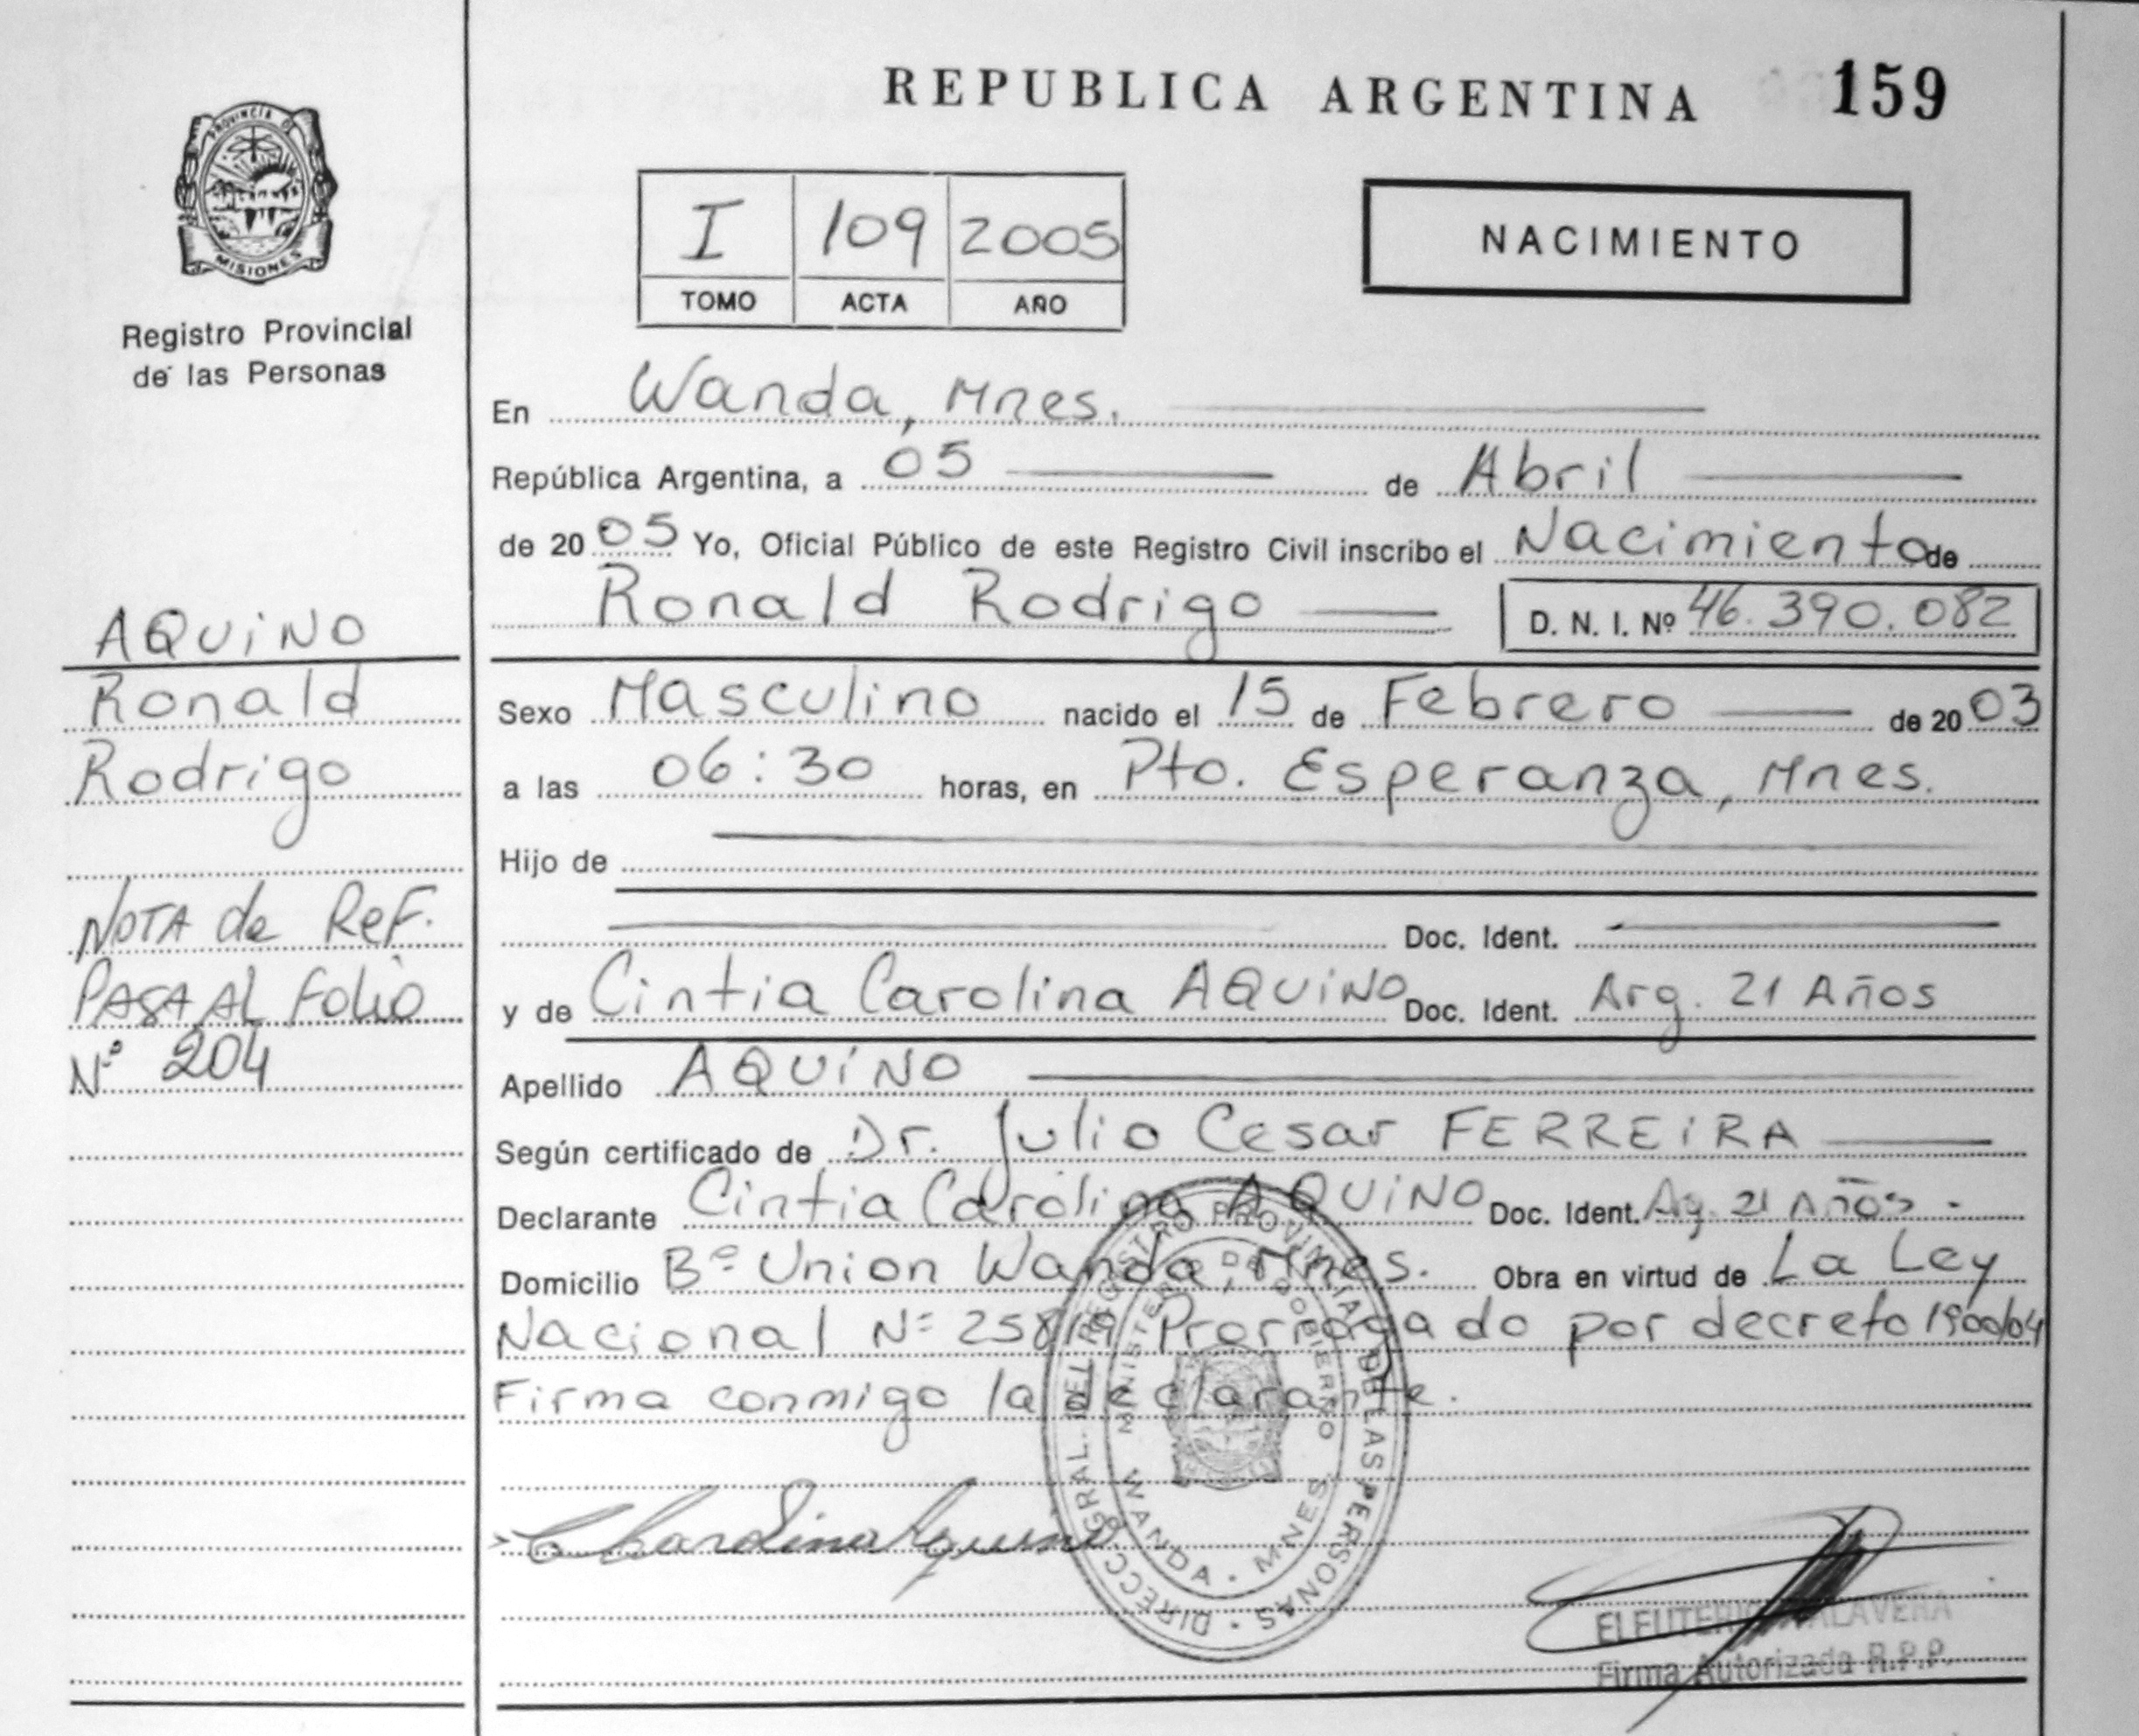 REPUBLICA ARGENTINA 159
PROVINCIA DE
MISIONES
Registro Provincial
de las Personas
I 109 2005
TOMO ACTA AÑO
NACIMIENTO
En Wanda, Mnes.
República Argentina, a 05 de Abril
de 2005 Yo, Oficial Público de este Registro Civil inscribo el Nacimiento de
Ronald Rodrigo D. N. I. Nº 46.390.082
AQUINO
Ronald
Rodrigo
NOTA de Ref.
PASA AL Folio
Nº 204
Sexo Masculino nacido el 15 de Febrero de 2003
a las 06:30 horas, en Pto. Esperanza, Mnes.
Hijo de
Doc. Ident.
y de Cintia Carolina AQUINO Doc. Ident. Arg. 21 Años
Apellido AQUINO
Según certificado de Dr. Julio Cesar FERREIRA
Declarante Cintia Carolina AQUINO Doc. Ident. Arg. 21 Años.
Domicilio Bº Union Wanda Mnes. Obra en virtud de La Ley
Nacional Nº 25819 Prorrogado por decreto 1900/04
Firma conmigo la declarante.
DIRECC. GRAL. DEL REGISTRO PROVINCIAL DE LAS PERSONAS
MINISTERIO DE GOBIERNO
WANDA - MNES.
Carolina Aquino
ELEUTERIO TALAVERA
Firma Autorizada R.P.P.